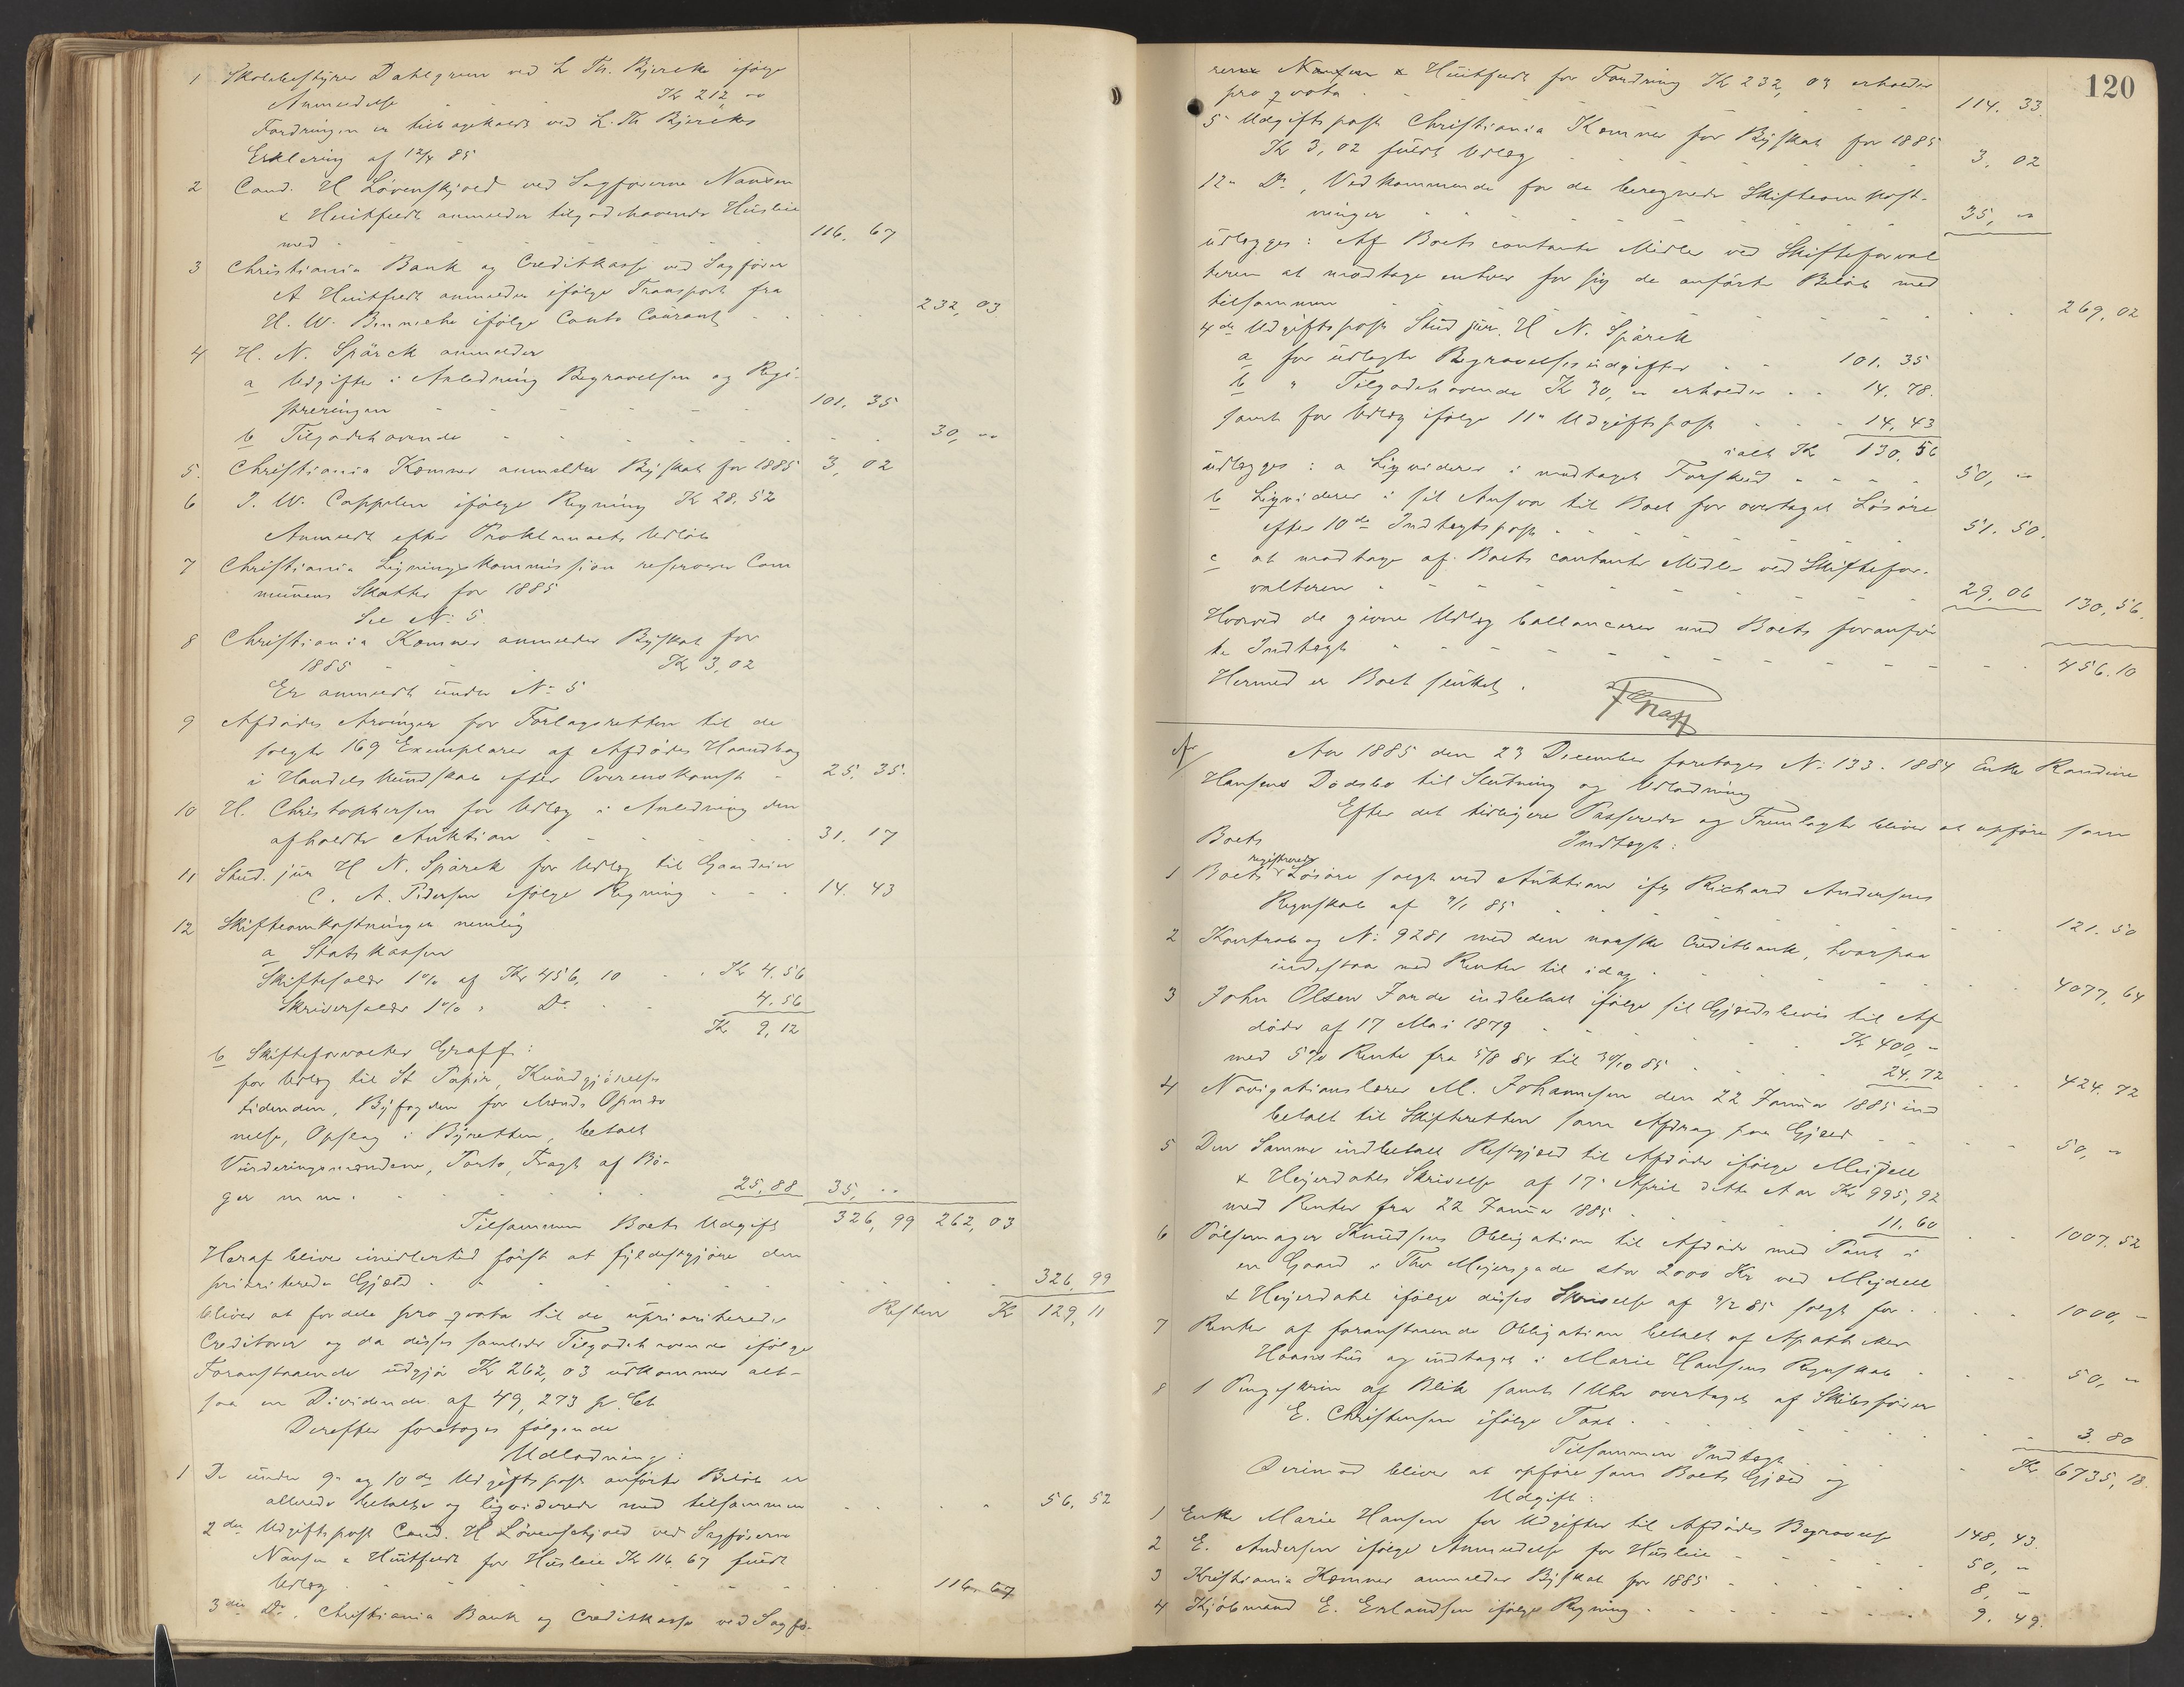 1 Skolebestyrer Dahlgreen ved L Th. Bjercke ifølge
Anmeldelse - - Kr 212,00
Fordringen er tilbagekaldt ved L. Th Bjerckes
Erklæring af 12/4 85
2 Cand. H Løvenskjold ved Sagførerne Nansen
& Huitfeldt anmelder tilgodehavende Husleie
med - - - 116. 67
3 Christiania Bank og Creditkasse ved Sagfører
A Huitfeldt anmelder ifølge Transport fra
H. W. ifølge Conto Courant - - 232,03
4 H. N. Spärck anmelder
a Udgifter i Anledning Begravelsen og Regi-
streringen - - - 101. 35
b Tilgodehavende - - - 30,00
5. Christiania Kemner anmelder Byskat for 1885 3,02
6 J. W. Cappelen ifølge Regning Kr 28.52
Anmeldt efter Proklamaets Udløb
7 Christiania Ligningskommission reserverer Com
munens Skatter for 1885
See No 5.
8 Christiania Kemner anmelder Byskat for
1885 - - Kr 3,02
Er anmeldt under No 5
9 Afdødes Arvinger for Forlagsretten til de
solgte 169 Exemplarer af Afdødes Haandbog
i Handelskundskab efter Overenskomst - 25. 35.
10 H. Christophersen for Udlæg i Anledning den
afholdte Auktion - - - 31. 17
11 Stud. jur H N. Spärck for Udlæg til Gaardeier
C. A. Pedersen ifølge Regning - - - 14. 43
12 Skifteomkostninger nemlig
a Statskassen
Skiftefoldr 1% af Kr 456,10 - - Kr 4.56
Skriverfoldr 1% " Do - - 4.56
Kr 9,12
b Skifteforvalter Graff:
for Udlæg til St Papir, Kundgjørelses
tidenden, Byfogden for Mands Opnæv
nelse, Opslag i Byretten, betalt
Vurderingsmændene, Porto, Fragt af Bø-
ger m m. - - - 25,88 35,00
Tilsammen Boets Udgift 326,99 262,03
Heraf blive imidlertid først at fyldestgjøre den
prioriterede Gjæld - - - 326,99
Resten Kr 129,11
bliver at fordele pro qvota til de uprioriterede
Creditorer og da disses samlede Tilgodehavende ifølge
Foranstaaende udgjør Kr 262,03 udkommer alt-
saa en Dividende af 49,273 pr. Ct
Derefter foretoges følgende
Udlodning:
1 De under 9de og 10de Udgiftspost anførte Beløb er
allerede betalte og liqviderede med tilsammen - - 56,52
2den Udgiftspost Cand. H Løvenskjold ved Sagførerne
Nansen & Huitfeldt for Husleie Kr 116.67 fuldt
Udlæg - - - 116.67
3die Do. Christiania Bank og Creditkasse ved Sagfø-
120
rerne Nansen & Huitfeldt for Fordring Kr 232,03 erholder
pro qvota - - - 114. 33.
5te Udgiftspost Christiania Kemner for Byskat for 1885
Kr 3,02 fuldt Udlæg - - - 3. 02
12te Do, Vedkommende for de beregnede Skifteomkost-
ninger - - - 35,00
udlægges: Af Boets contante Midler ved Skifteforval
teren at modtage enhver for sig de anførte Beløb med
tilsammen - - - 269,02
4de Udgiftspost Stud jur. H N. Spärck
a for udlagte Begravelsesudgifter - - 101. 35
b " Tilgodehavende Kr 30,00 erholder - - 14. 78.
samt for Udlæg ifølge 11te Udgiftspost - - 14. 43
ialt Kr 130,56
udlægges: a Liqviderer i modtaget Forskud - - - 50,00
b Liqviderer i sit Ansvar til Boet for overtaget Løsøre
efter 10de Indtægtspost - - - 51. 50.
c at modtage af Boets contante Midler ved Skiftefor-
valteren - - - 29,06 130,56.
Hvorved de givne Udlæg ballancerer med Boets foranfør
te Indtægt - - - 456.10
Hermed er Boet sluttet.
Graff
Aar 1885 den 23 December foretoges No 133. 1884 Enke Randine
Hansens Dødsbo til Slutning og Udlodning
Efter det tidligere Passerede og Fremlagte bliver at opføre som
Boets Indtægt:
1 Boets registrerede Løsøre solgt ved Auktion ifg Richard Andersens
Regnskab af 9/1 85 - - - 121. 50
2 Kontrabog No 9281 med den norske Creditbank, hvorpaa
indestaar med Renter til idag - - - 4077,64
3 John Olsen Forde indbetalt ifølge sit Gjældsbevis til Af
døde af 17 Mai 1879 - - - Kr 400,-
med 5% Rente fra 5/8 84 til 30/10 85 - - - 24.72 424. 72
4 Navigationslærer M. Johannesen den 22 Januar 1885 ind
betalt til Skifteretten som Afdrag paa Gjæld - - - 50,00
5 Den Samme indbetalt Restgjæld til Afdøde ifølge Mejdell
& Heyerdahls Skrivelse af 17de April dette Aar Kr 995,92
med Renter fra 22 Januar 1885 - - - 11.60 1007.52
6 Pølsemager Knudsens Obligation til Afdøde med Pant i
en Gaard i Thv Meyersgade stor 2000 Kr ved Mejdell
& Heyerdahl ifølge disses Skrivelse af 9/2 85 solgt for - - 1000,-
7 Renter af foranstaaende Obligation betalt af Apotheker
og indtaget i Marie Hansens Regnskab - - - 50,00
8 1 Pengeskrin af Blik samt 1 Uhr overtaget af Skibsfører
E. Christensen ifølge Taxt - - - 3. 80
Tilsammen Indtægt - - Kr 6735,18.
Derimod bliver at opføre som Boets Gjæld og
Udgift:
1 Enke Marie Hansen for Udgifter til Afdødes Begravelse 148,43.
2 E. Andersen ifølge Anmeldelse for Husleie - - - 50,00
3 Kristiania Kemner anmelder Byskat for 1885 - - - 8,-
4 Kjøbmand E. Erlandsen ifølge Regning - - - 9. 49.